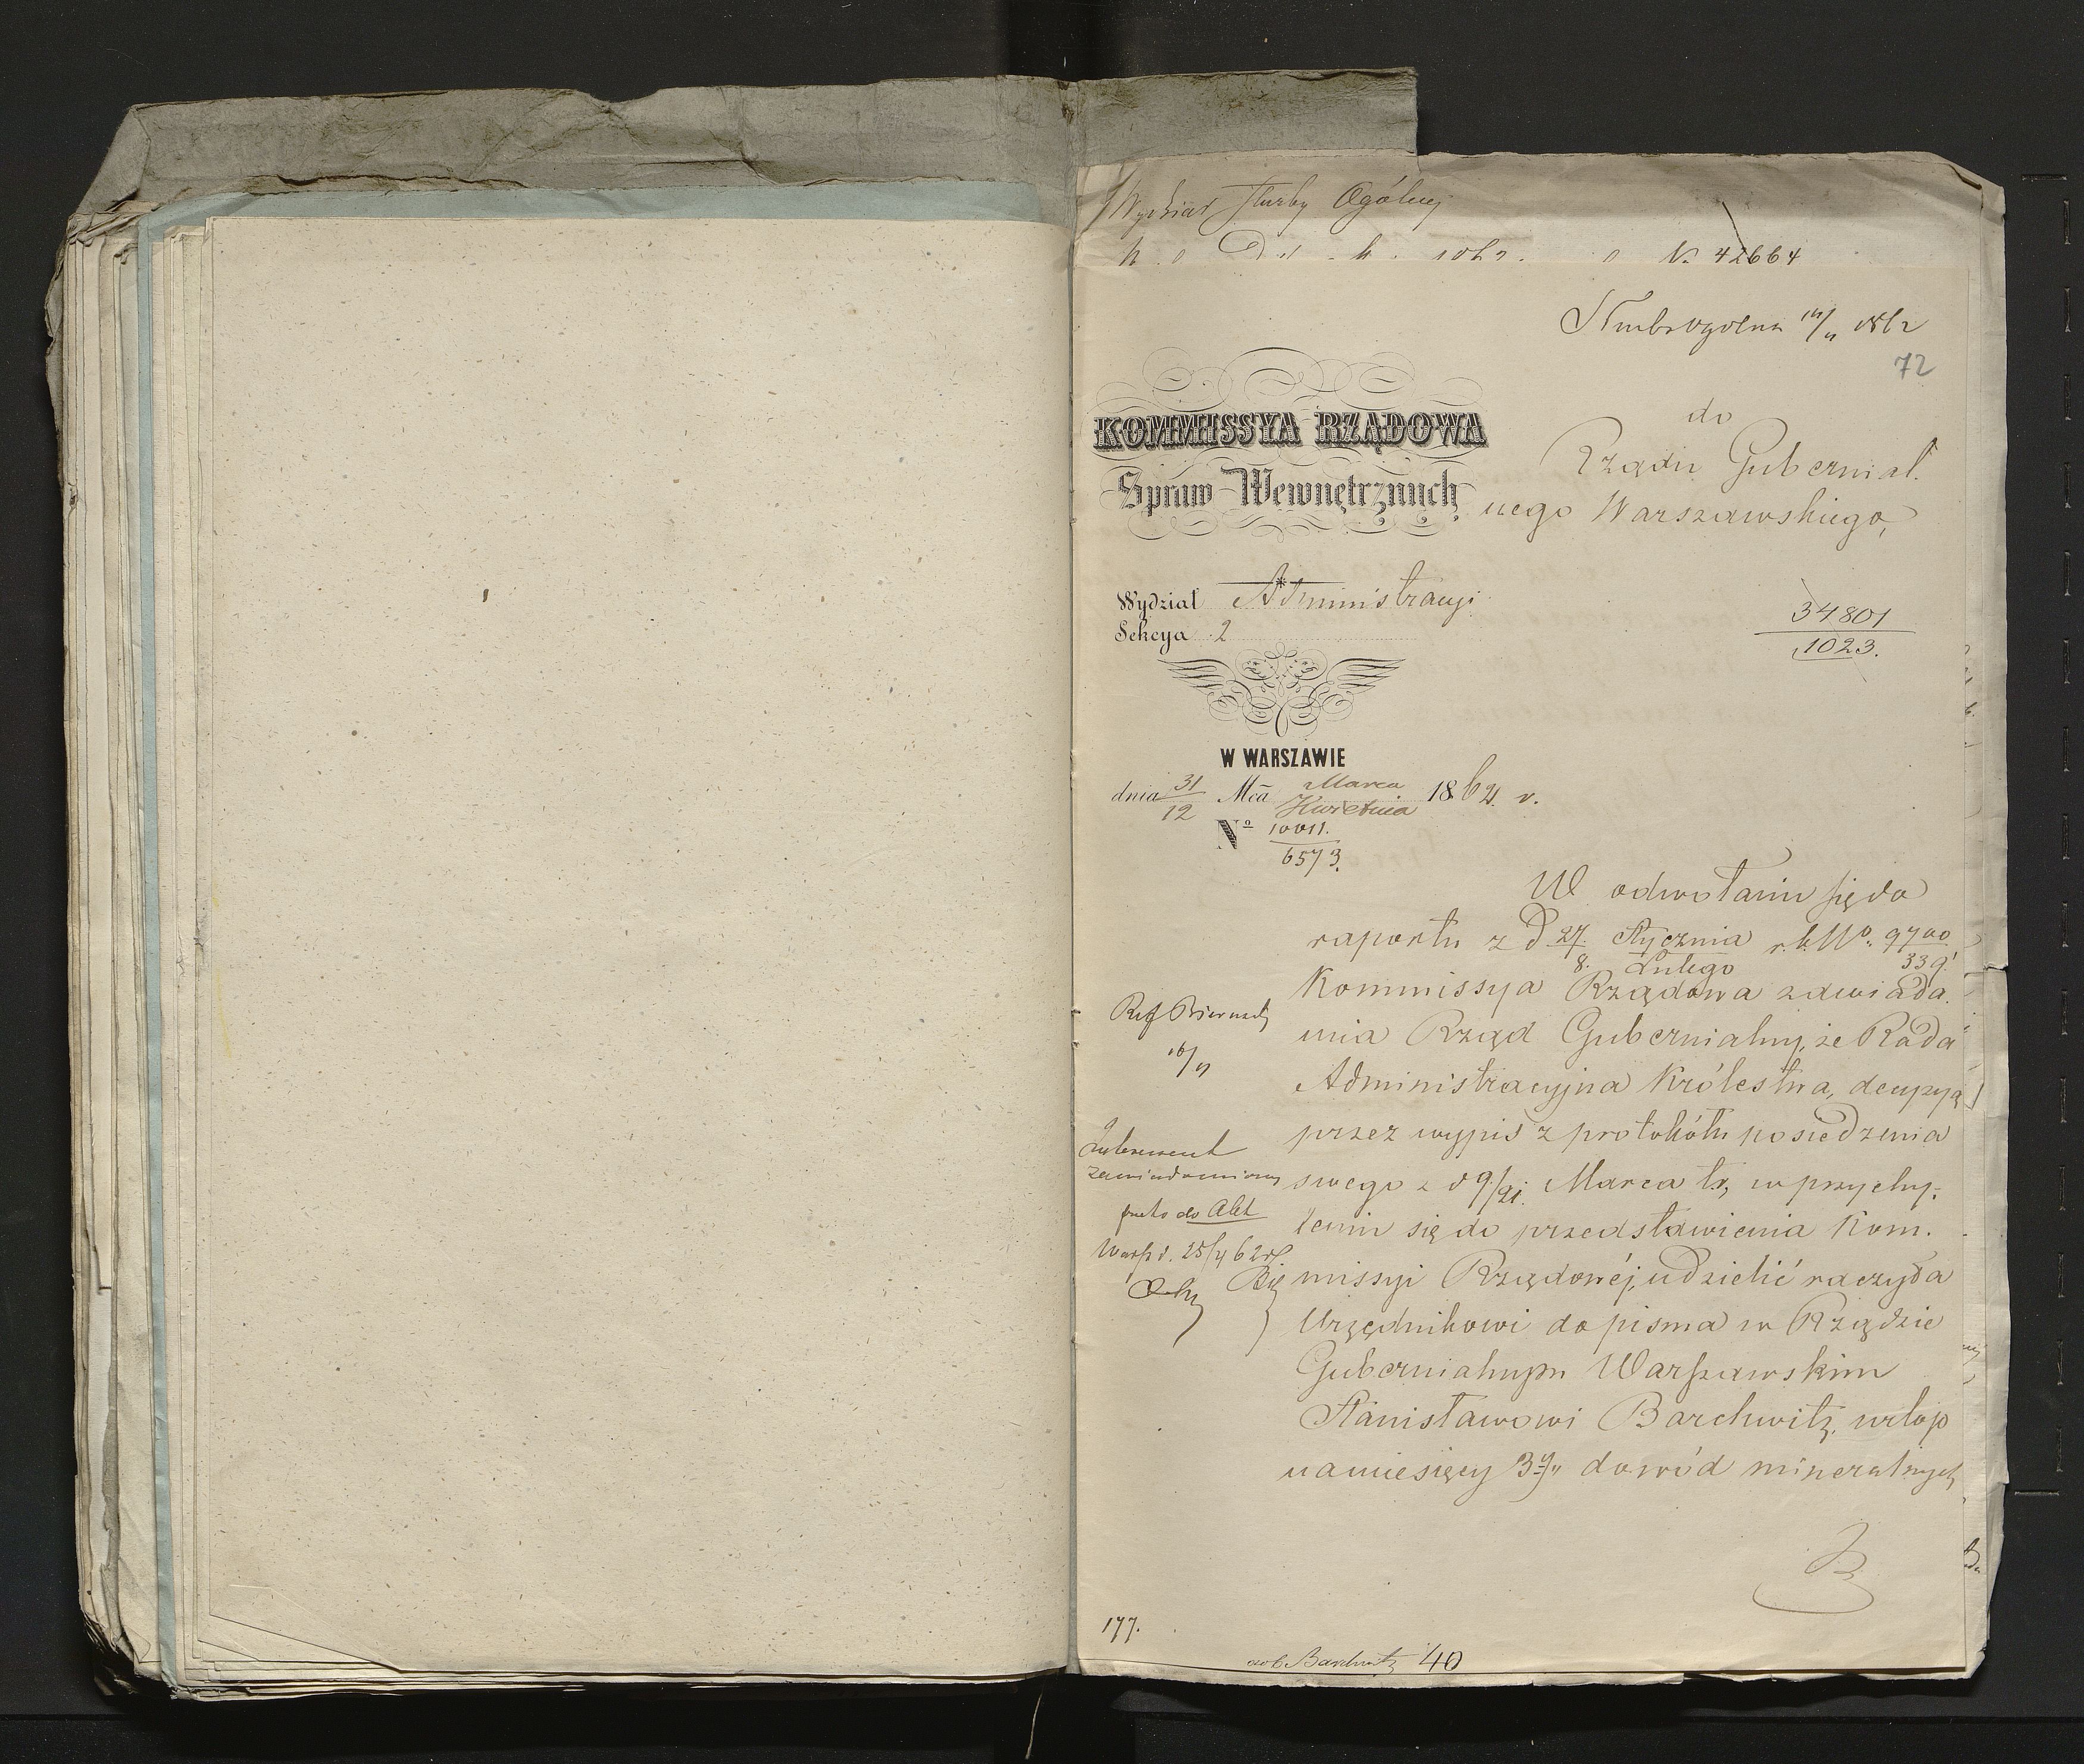 Wydział Służby Ogólnej
N. 42664
1862
72
do
Rządu Gubernial.
nego Warszawskiego,
KOMMISSYA RZĄDOWA
Spraw Wewnętrznych
Wydział Administracyi
Sekcya 2
34801
1023.
W WARSZAWIE
dnia 31/12 Mca Marca/Kwietnia 1862 r.
No 10011.
6573.
W odwołaniu się do
raportu z d 27/8 Stycznia/Lutego r. b. No. 9700/339
Kommissya Rządowa zawiada.
mia Rząd Gubernialny, że Rada
Administracyjna Królestwa, decyzyą
przez wypis z protokółu posiedzenia
swego z d 9/21. Marca tr, w przychy-
leniu się do przedstawienia Kom.
missyi Rządowéj, udzielić raczyła
Urzędnikowi do pisma w Rządzie
Gubernialnym Warszawskim
Stanisławowi Barchwitz, urlop
na miesięcy 3y do wód mineralnych
Ref Biernacki
16/4
Interessent
zawiadomiony
do Akt
Warsz d. 25/4 62 r
177.
Barchwitz 40